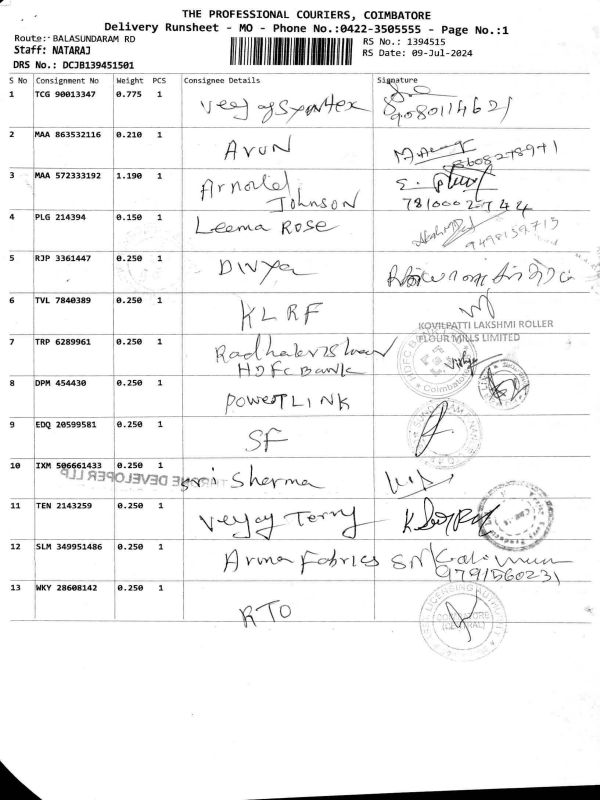 THE PROFESSIONAL COURIERS, COIMBATORE
Delivery Runsheet - MO - Phone No.:0422-3505555 - Page No.:1
Route:- BALASUNDARAM RD
Staff: NATARAJ
DRS No.: DCJB139451501
RS No.: 1394515
RS Date: 09-Jul-2024
S No Consignment No Weight PCS Consignee Details Signature
1 TCG 90013347 0.775 1
2 MAA 863532116 0.210 1 Arun
8608278971
3 MAA 572333192 1.190 1 Arnold
Johnson
7810002744
4 PLG 214394 0.150 1 Leema Rose
9498159715
5 RJP 3361447 0.250 1 Divya
6 TVL 7840389 0.250 1 KLRF
KOVILPATTI LAKSHMI ROLLER
FLOUR MILLS LIMITED
7 TRP 6289961 0.250 1 Radhakrishnan
HDFC Bank
Coimbatore
8 DPM 454430 0.250 1 POWERLINK
9 EDQ 20599581 0.250 1 SF
10 IXM 506661433 0.250 1 Sri Sherma
DEVELOPER LLP
11 TEN 2143259 0.250 1 Veejay Terry
12 SLM 349951486 0.250 1 Arma Fabrics
9791560231
13 WKY 28608142 0.250 1 RTO
LICENSING AUTHORITY
COIMBATORE
(CENTRAL)